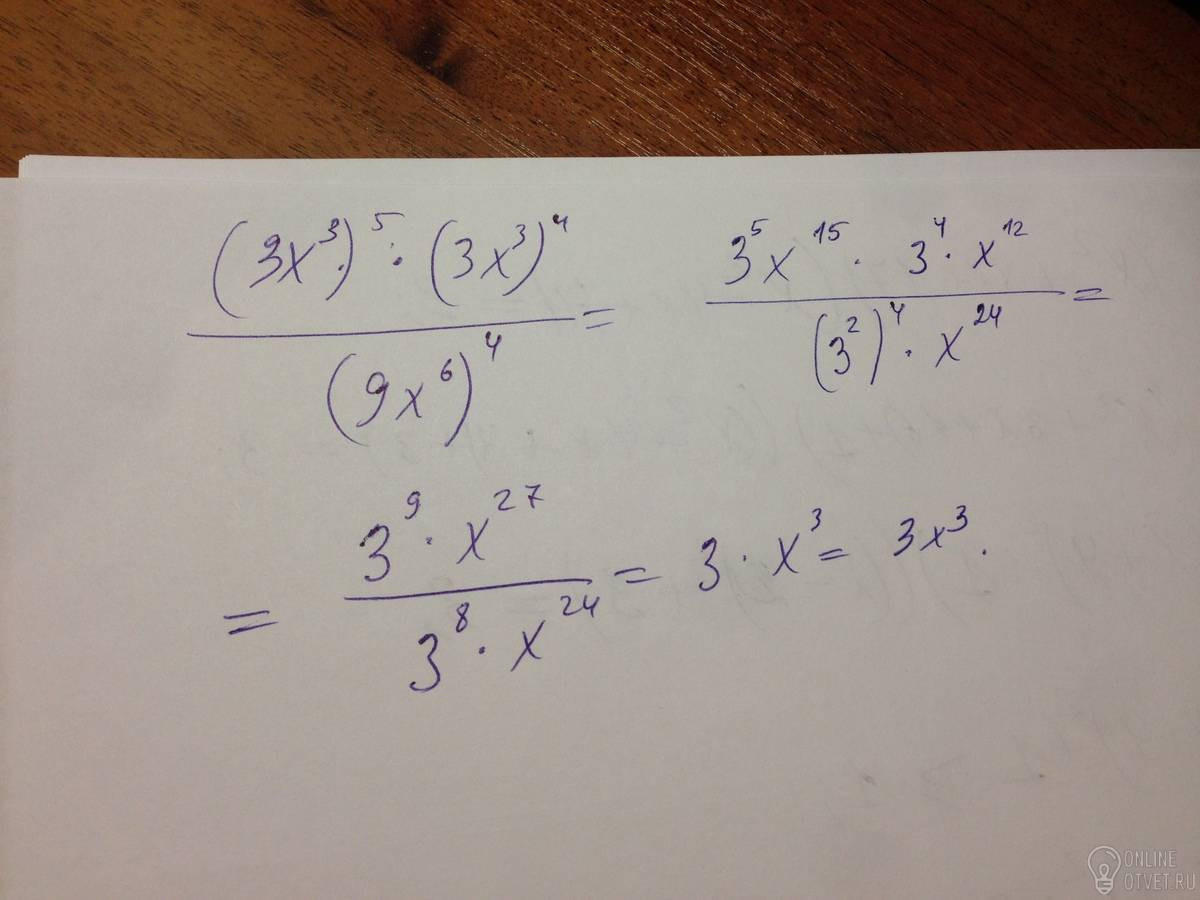 (3x³)⁵ · (3x³)⁴ / (9x⁶)⁴ = 3⁵x¹⁵ · 3⁴ · x¹² / (3²)⁴ · x²⁴ =
= 3⁹ · x²⁷ / 3⁸ · x²⁴ = 3 · x³ = 3x³.
ONLINE
OTVET.RU